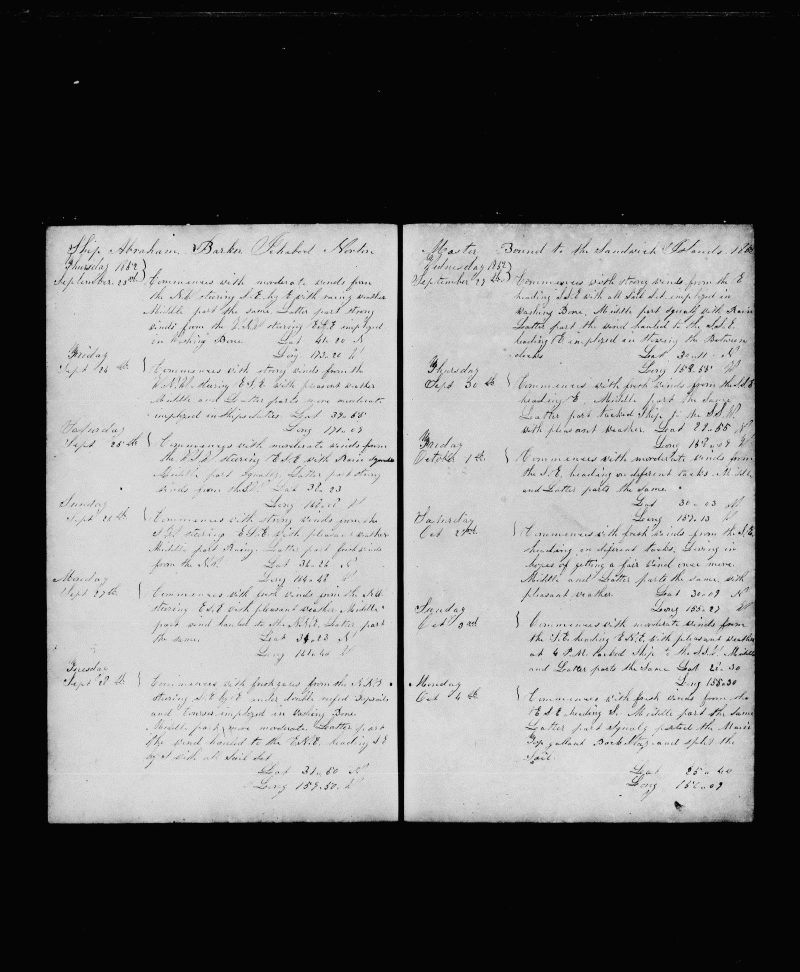 Ship Abraham Barker Ichabod Norton
Thursday 1852
September 23rd } Commences with moderate winds from
the N.W. stering S.E. by E with raney weather
Middle part the same Latter part strong
winds from the stering E.S.E imployed
in washing Bone. Lat 41..20 N
Long 173.20 W
Friday
Sept 24th { Commences with strong winds from the
stering E.S.E. with pleasant wether
Middle and Latter parts more moderate
imployed in Ships duties. Lat 39..55
Long 171..09
Saturday
Sept 25th { Commences with moderate winds from
the stering E.S.E with Rain Squalls
Middle part Squally Latter part strong
winds from the Lat 38.23
Long W
Sunday
Sept 26th } Commences with strong winds from the
stering E.S.E. with pleasant wether
Middle part Rainy. Latter part fresh winds
from the N.W. Lat 36..26 N
Long 164..48 W
Monday
Sept 27th { Commences with fresh winds from the N.W.
stering E.S.E with pleasant weather Middle
part wind hauled to the Latter part
the same. Lat 34.23 N
Long 161.40 W
Tuesday
Sept 28th } Commences with fresh gales from the
stering S.E by E under double reefed Topsails
and Courses imployed in washing Bone.
Middle part more moderate Latter part
the wind hauled to the E.N.E. heading S.E
by S with all Sail Set
Lat 31..50 N
Long 159.50. W
Master Bound to the Sandwich Islands 1852
Wednesday 1852
September 29th } Commences with strong winds from the E
heading S.S.E with all Sail Set imployed in
washing Bone, Middle part Squally with Rain
Latter part the wind hauled to the S.S.E.
heading E imployed in stowing the Between
decks Lat 30..11.. N
Long 158.55 W
Thursday
Sept 30th { Commences with fresh winds from the S.S.E
heading E. Middle part the same
Latter part tacked Ship to the S.S.W
with pleasant weather Lat 29..55 N
Long W
Friday
October 1st. } Commences with moderate winds from
the S.E. heading on different tacks. Middle
and Latter parts the same.
Lat 30..03 N
Long 157.13 W
Saturday
Oct 2nd. } Commences with fresh winds from the S.E.
heading on different tacks, Living in
hopes of getting a fair wind once more.
Middle and Latter parts the same, with
pleasant weather. Lat 30.09 N
Long 155..27 W
Sunday
Oct 3rd } Commences with moderate winds from
the S.E. heading E.N.E. with pleasant weather
at 4 P.M. tacked Ship to the S.S.W Middle
and Latter parts the Same Lat 28..30
Long 155..30
Monday
Oct 4th } Commences with fresh winds from the
E.S.E heading S. Middle part the same
Latter part Squaly parted the Main
Top gallant Back Stay and split the
Sail.
Lat 25..40
Long 156..09